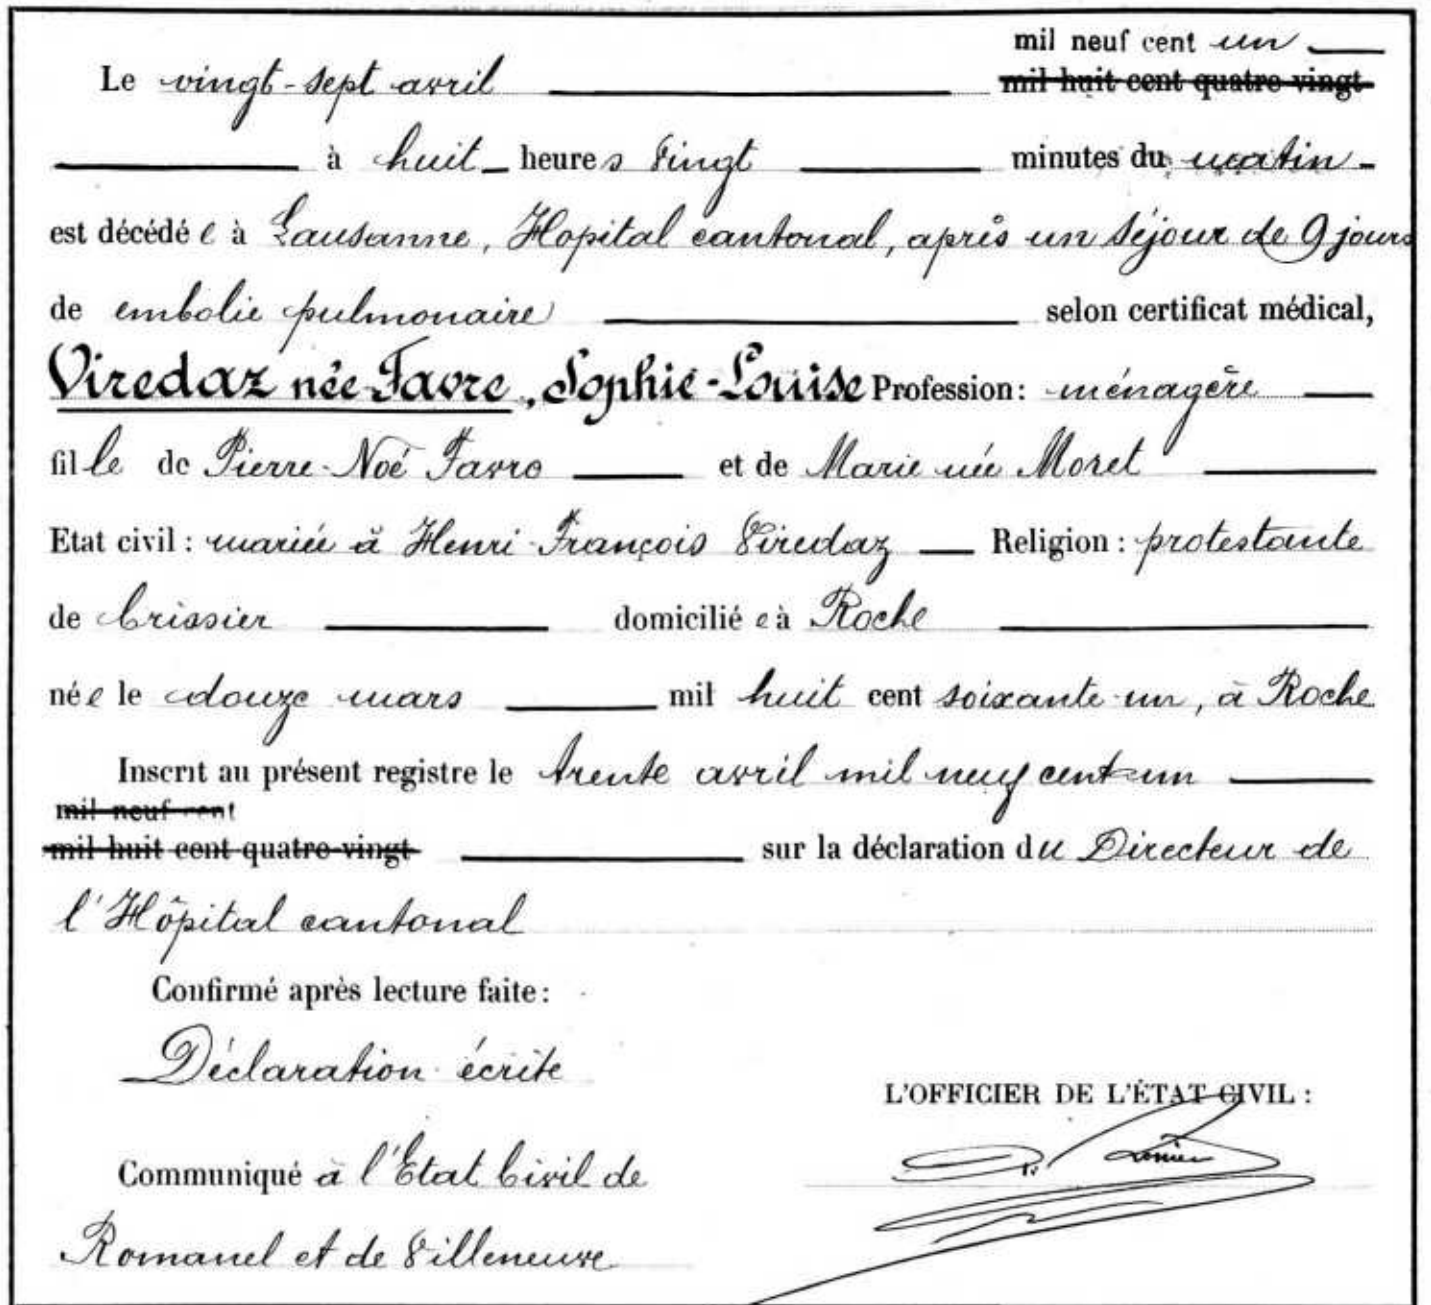 mil neuf cent un
Le vingt-sept avril mil huit cent quatre-vingt
à huit heures vingt minutes du matin
est décédée à Lausanne, Hopital cantonal, après un séjour de 9 jours
de embolie pulmonaire selon certificat médical,
Viredaz née Favre, Sophie-Louise Profession: ménagère
fille de Pierre-Noé Favre et de Marie née Moret
Etat civil: mariée à Henri-François Viredaz Religion: protestante
de Crissier domiciliée à Roche
née le douze mars mil huit cent soixante-un, à Roche
Inscrit au présent registre le trente avril mil neuf cent un
mil neuf cent
mil huit cent quatre-vingt sur la déclaration du Directeur de
l'Hôpital cantonal
Confirmé après lecture faite:
Déclaration écrite
L'OFFICIER DE L'ÉTAT CIVIL:
Communiqué à l'Etat Civil de
Romanel et de Villeneuve